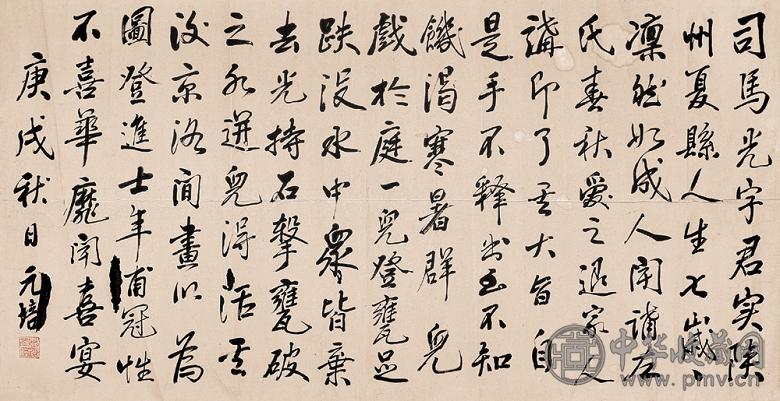 司馬光字君實陝
州夏縣人生七歲
凜然如成人聞講左
氏春秋愛之退家人
講即了其大旨自
是手不釋書至不知
饑渴寒暑群兒
戲於庭一兒登甕足
跌沒水中眾皆棄
去光持石擊甕破
之水迸兒得活其
後京洛間畫以為
圖登進士年甫冠性
不喜華靡聞喜宴
庚戌秋日元培
中华收藏网
www.pmv.cn